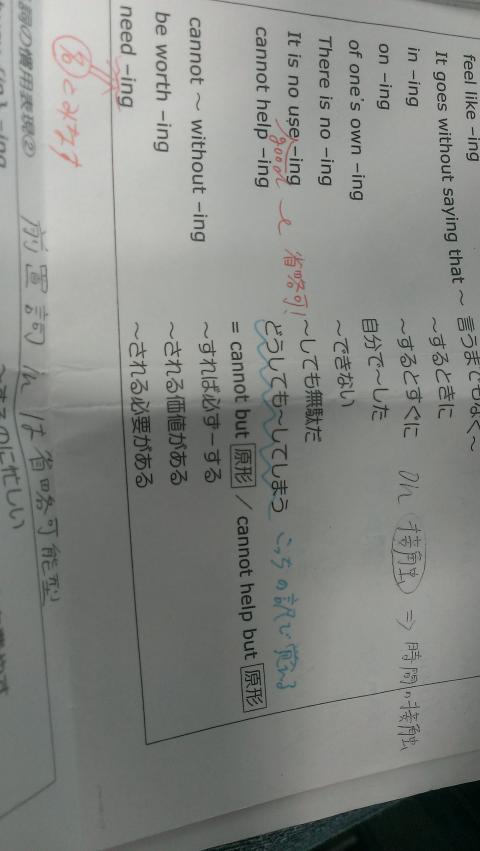 feel like –ing
It goes without saying that ~ 言うまでもなく~
in –ing ~するときに
on –ing ~するとすぐに on 接触 ⇒ 時間の接触
of one's own –ing 自分で~した
There is no –ing ~できない
It is no use –ing ~しても無駄だ
good と 省略可!
cannot help –ing どうしても~してしまう こっちの訳で覚える
= cannot but 原形 / cannot help but 原形
cannot ~ without –ing ~すれば必ずーする
be worth –ing ~される価値がある
need –ing ~される必要がある
名とみなす
詞の慣用表現② 前置詞 in は省略可能型
~するのに忙しい